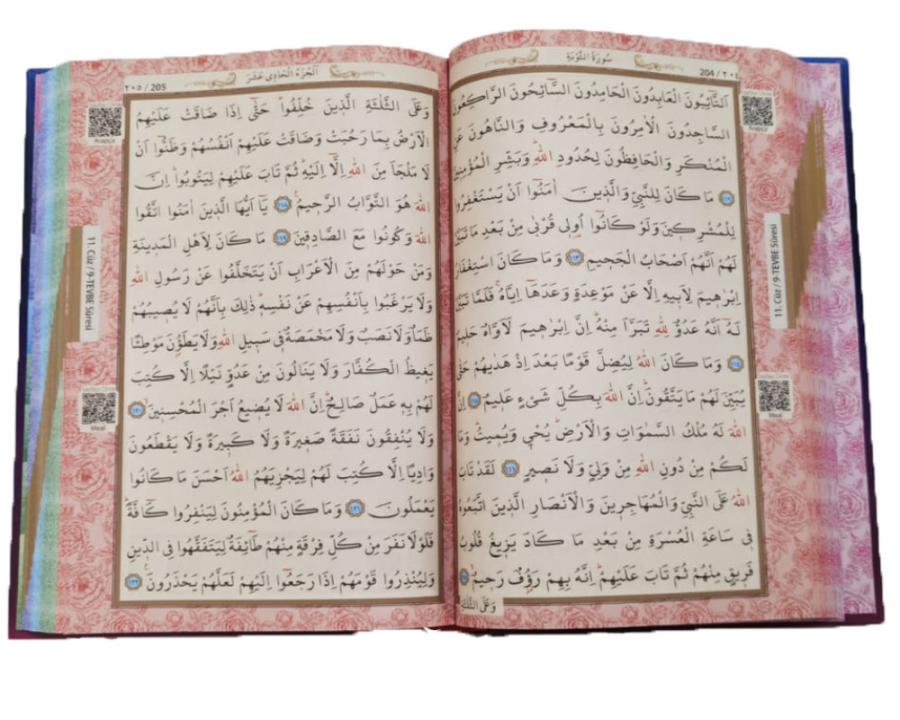 سُورَةُ التَّوْبَةِ
204 / ٢٠٤
اَلتَّٓائِبُونَ الْعَابِدُونَ الْحَامِدُونَ السَّٓائِحُونَ الرَّاكِعُونَ
السَّاجِدُونَ الْاٰمِرُونَ بِالْمَعْرُوفِ وَالنَّاهُونَ عَنِ
الْمُنْكَرِ وَالْحَافِظُونَ لِحُدُودِ اللّٰهِ وَبَشِّرِ الْمُؤْمِنِينَ
﴿١١٢﴾ مَا كَانَ لِلنَّبِيِّ وَالَّذِينَ اٰمَنُٓوا اَنْ يَسْتَغْفِرُوا
لِلْمُشْرِكِينَ وَلَوْ كَانُٓوا اُو۬لِي قُرْبٰى مِنْ بَعْدِ مَا تَبَيَّنَ
لَهُمْ اَنَّهُمْ اَصْحَابُ الْجَحِيمِ ﴿١١٣﴾ وَمَا كَانَ اسْتِغْفَارُ
اِبْرٰهِيمَ لِاَبِيهِ اِلَّا عَنْ مَوْعِدَةٍ وَعَدَهَٓا اِيَّاهُۚ فَلَمَّا تَبَيَّنَ
لَهُٓ اَنَّهُ عَدُوٌّ لِلّٰهِ تَبَرَّاَ مِنْهُۜ اِنَّ اِبْرٰهِيمَ لَاَوَّاهٌ حَلِيمٌ
﴿١١٤﴾ وَمَا كَانَ اللّٰهُ لِيُضِلَّ قَوْمًا بَعْدَ اِذْ هَدٰيهُمْ حَتّٰى
يُبَيِّنَ لَهُمْ مَا يَتَّقُونَۜ اِنَّ اللّٰهَ بِكُلِّ شَيْءٍ عَلِيمٌ ﴿١١٥﴾ اِنَّ
اللّٰهَ لَهُ مُلْكُ السَّمٰوَاتِ وَالْاَرْضِۜ يُحْيٖ وَيُمِيتُۜ وَمَا
لَكُمْ مِنْ دُونِ اللّٰهِ مِنْ وَلِيٍّ وَلَا نَصِيرٍ ﴿١١٦﴾ لَقَدْ تَابَ
اللّٰهُ عَلَى النَّبِيِّ وَالْمُهَاجِرِينَ وَالْاَنْصَارِ الَّذِينَ اتَّبَعُوهُ
فِي سَاعَةِ الْعُسْرَةِ مِنْ بَعْدِ مَا كَادَ يَزِيغُ قُلُوبُ
فَرِيقٍ مِنْهُمْ ثُمَّ تَابَ عَلَيْهِمْۜ اِنَّهُ بِهِمْ رَؤُ۫فٌ رَحِيمٌ ﴿١١٧﴾
وَعَلَى الثَّلٰثَةِ
11. Cüz / 9-TEVBE Sûresi
Meal
اَلْجُزْءُ الْحَادِي عَشَرَ
٢٠٥ / 205
وَعَلَى الثَّلٰثَةِ الَّذِينَ خُلِّفُوا حَتّٰٓى اِذَا ضَاقَتْ عَلَيْهِمُ
الْاَرْضُ بِمَا رَحُبَتْ وَضَاقَتْ عَلَيْهِمْ اَنْفُسُهُمْ وَظَنُّٓوا اَنْ
لَا مَلْجَاَ مِنَ اللّٰهِ اِلَّٓا اِلَيْهِۜ ثُمَّ تَابَ عَلَيْهِمْ لِيَتُوبُواۜ اِنَّ
اللّٰهَ هُوَ التَّوَّابُ الرَّحِيمُ ﴿١١٨﴾ يَٓا اَيُّهَا الَّذِينَ اٰمَنُوا اتَّقُوا
اللّٰهَ وَكُونُوا مَعَ الصَّادِقِينَ ﴿١١٩﴾ مَا كَانَ لِاَهْلِ الْمَدِينَةِ
وَمَنْ حَوْلَهُمْ مِنَ الْاَعْرَابِ اَنْ يَتَخَلَّفُوا عَنْ رَسُولِ اللّٰهِ
وَلَا يَرْغَبُوا بِاَنْفُسِهِمْ عَنْ نَفْسِهٖۜ ذٰلِكَ بِاَنَّهُمْ لَا يُصِيبُهُمْ
ظَمَاٌ وَلَا نَصَبٌ وَلَا مَخْمَصَةٌ فِي سَبِيلِ اللّٰهِ وَلَا يَطَؤُ۫نَ مَوْطِئًا
يَغِيظُ الْكُفَّارَ وَلَا يَنَالُونَ مِنْ عَدُوٍّ نَيْلًا اِلَّا كُتِبَ
لَهُمْ بِهٖ عَمَلٌ صَالِحٌۜ اِنَّ اللّٰهَ لَا يُضِيعُ اَجْرَ الْمُحْسِنِينَ ﴿١٢٠﴾
وَلَا يُنْفِقُونَ نَفَقَةً صَغِيرَةً وَلَا كَبِيرَةً وَلَا يَقْطَعُونَ
وَادِيًا اِلَّا كُتِبَ لَهُمْ لِيَجْزِيَهُمُ اللّٰهُ اَحْسَنَ مَا كَانُوا
يَعْمَلُونَ ﴿١٢١﴾ وَمَا كَانَ الْمُؤْمِنُونَ لِيَنْفِرُوا كَٓافَّةًۜ
فَلَوْلَا نَفَرَ مِنْ كُلِّ فِرْقَةٍ مِنْهُمْ طَٓائِفَةٌ لِيَتَفَقَّهُوا فِي الدِّينِ
وَلِيُنْذِرُوا قَوْمَهُمْ اِذَا رَجَعُٓوا اِلَيْهِمْ لَعَلَّهُمْ يَحْذَرُونَ ﴿١٢٢﴾
11. Cüz / 9-TEVBE Sûresi
Meal